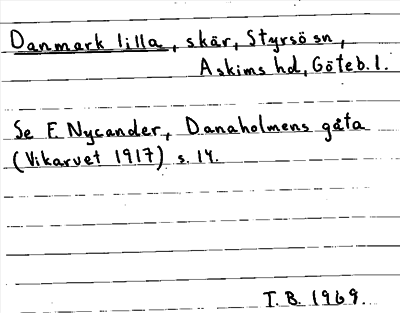 Danmark lilla, skär, Styrsö sn,
Askims hd, Göteb. l.
Se F. Nycander, Danaholmens gåta
(Vikarvet 1917) s. 14.
T. B. 1969.